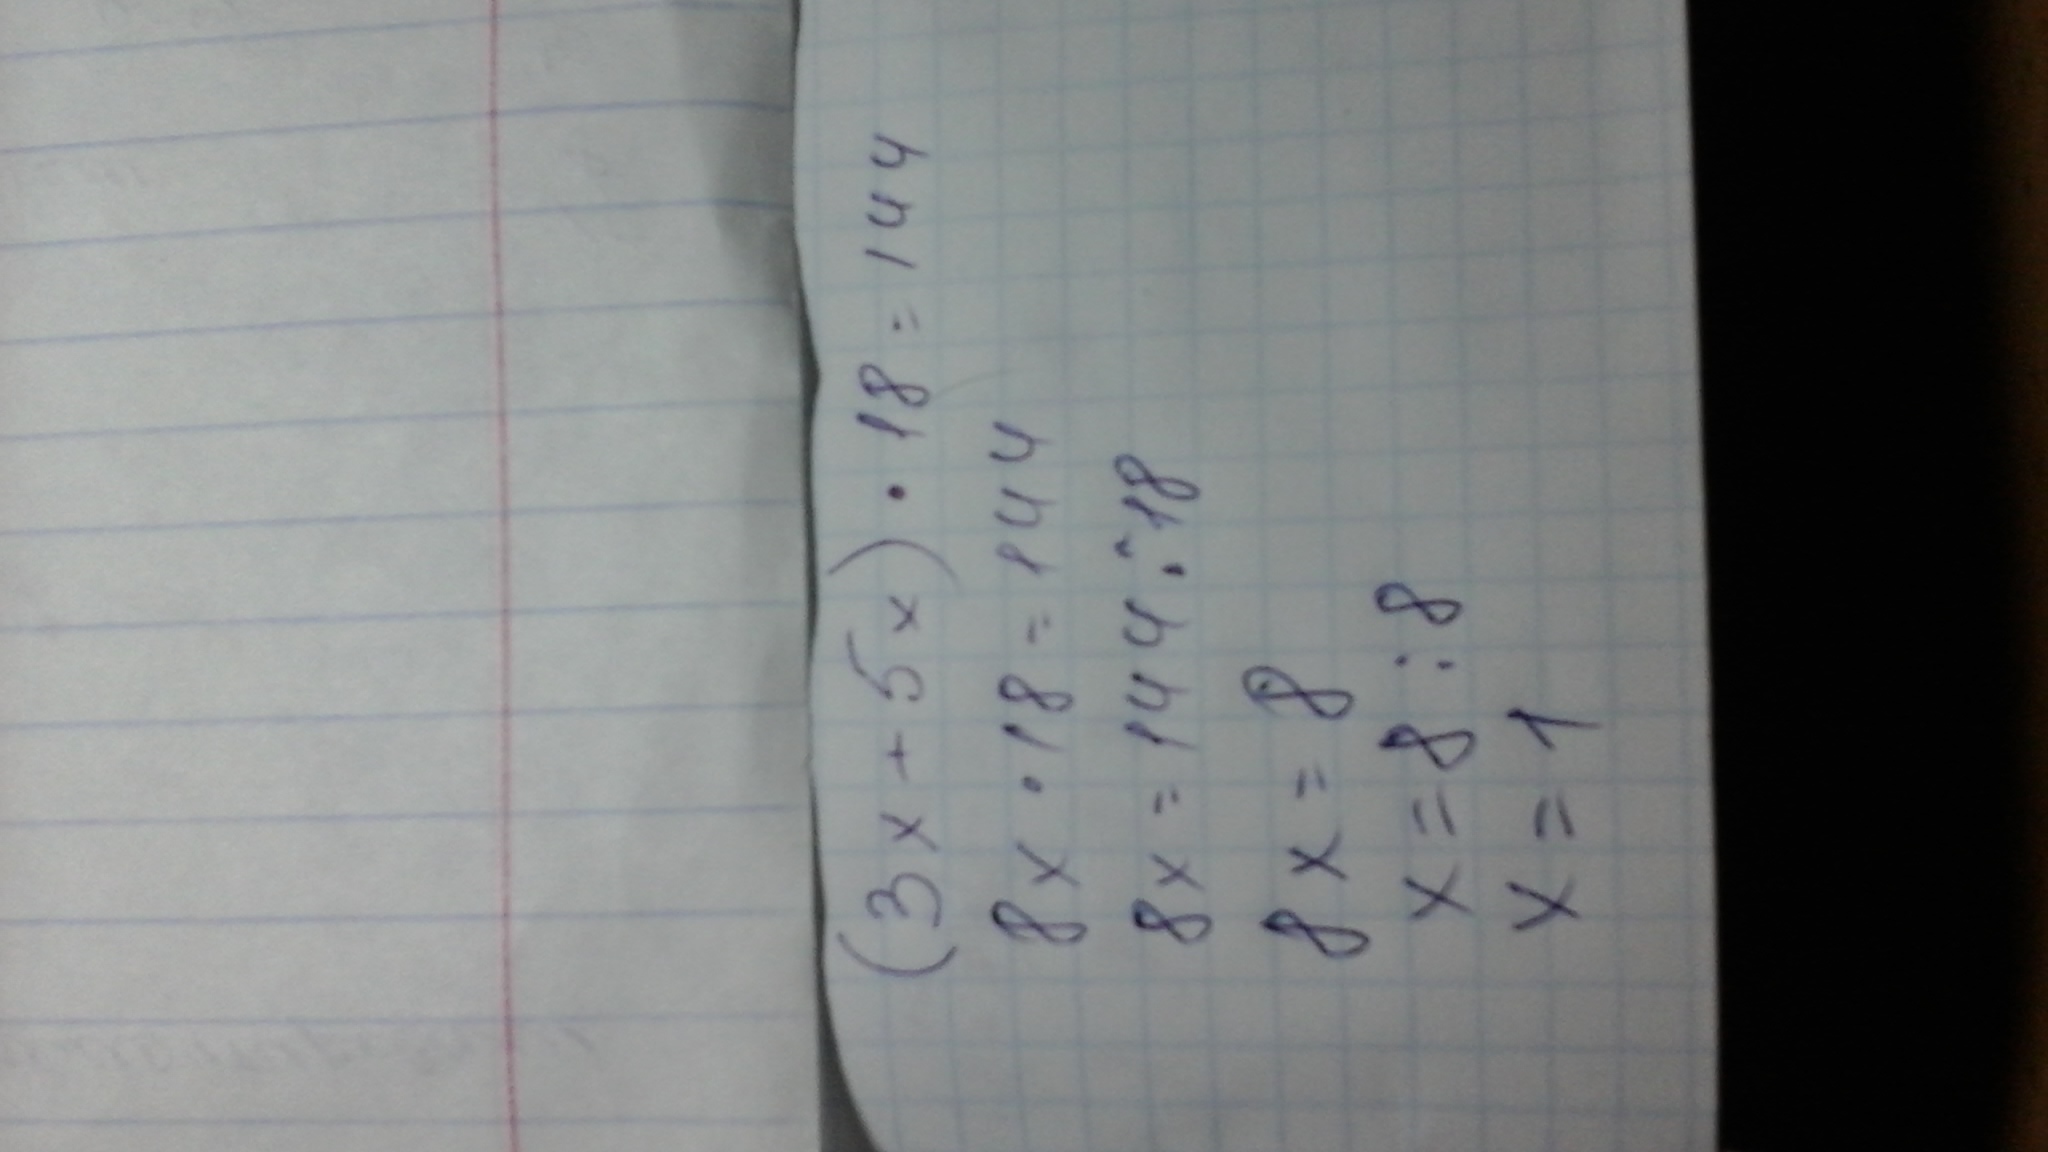 (3x + 5x) · 18 = 144
8x · 18 = 144
8x = 144 : 18
8x = 8
x = 8 : 8
x = 1